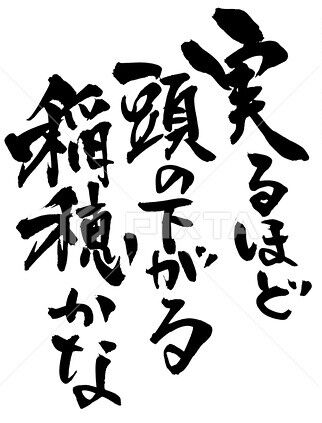 実るほど
頭の下がる
稲穂かな
PIXTA